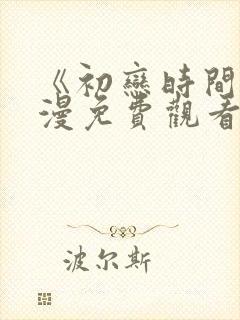 《初戀時間
漫免費觀看
波尔斯